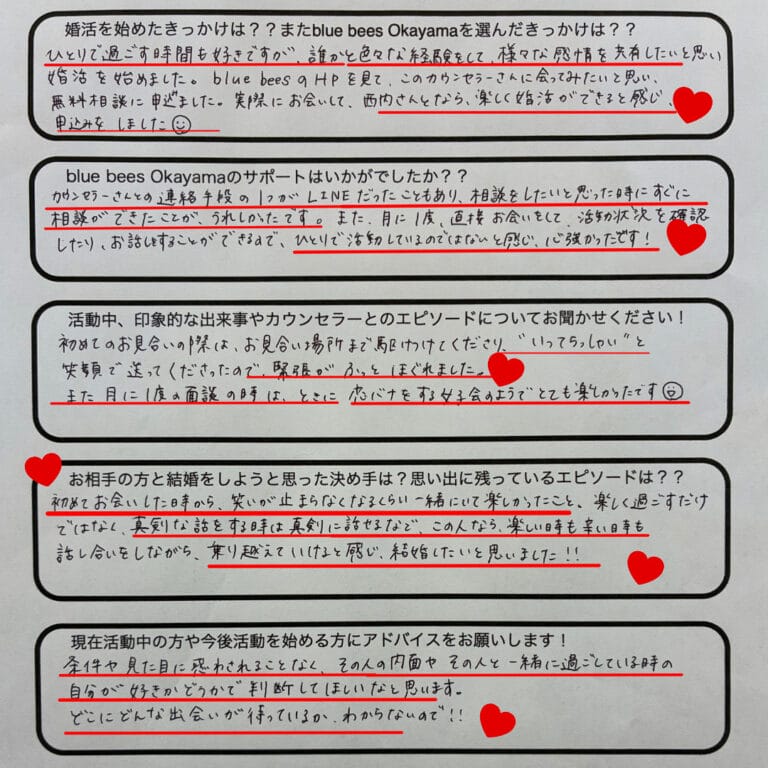 婚活を始めたきっかけは？？またblue bees Okayamaを選んだきっかけは？？
ひとりで過ごす時間も好きですが、誰かと色々な経験をして、様々な感情を共有したいと思い
婚活を始めました。blue beesのHPを見て、このカウンセラーさんに会ってみたいと思い、
無料相談に申込ました。実際にお会いして、西内さんとなら、楽しく婚活ができると感じ、
申込みをしました
blue bees Okayamaのサポートはいかがでしたか？？
カウンセラーさんとの連絡手段の1つがLINEだったこともあり、相談をしたいと思った時にすぐに
相談ができたことが、うれしかったです。また、月に1度、直接お会いをして、活動状況を確認
したり、お話しをすることができるので、ひとりで活動しているのではないと感じ、心強かったです！
活動中、印象的な出来事やカウンセラーとのエピソードについてお聞かせください！
初めてのお見合いの際は、お見合い場所まで駆けつけてくださり、"いってらっしゃい"と
笑顔で送ってくださったので、緊張がふっとほぐれました。
また月に1度の面談の時は、ときに恋バナをする女子会のようでとても楽しかったです
お相手の方と結婚をしようと思った決め手は？思い出に残っているエピソードは？？
初めてお会いした時から、笑いが止まらなくなるくらい一緒にいて楽しかったこと。楽しく過ごすだけ
ではなく、真剣な話をする時は真剣に話せるなど、この人なら、楽しい時も辛い時も
話し合いをしながら、乗り越えていけると感じ、結婚したいと思いました！！
現在活動中の方や今後活動を始める方にアドバイスをお願いします！
条件や見た目に惑わされることなく、その人の内面やその人と一緒に過ごしている時の
自分が好きかどうかで判断してほしいなと思います。
どこにどんな出会いが待っているか、わからないので！！